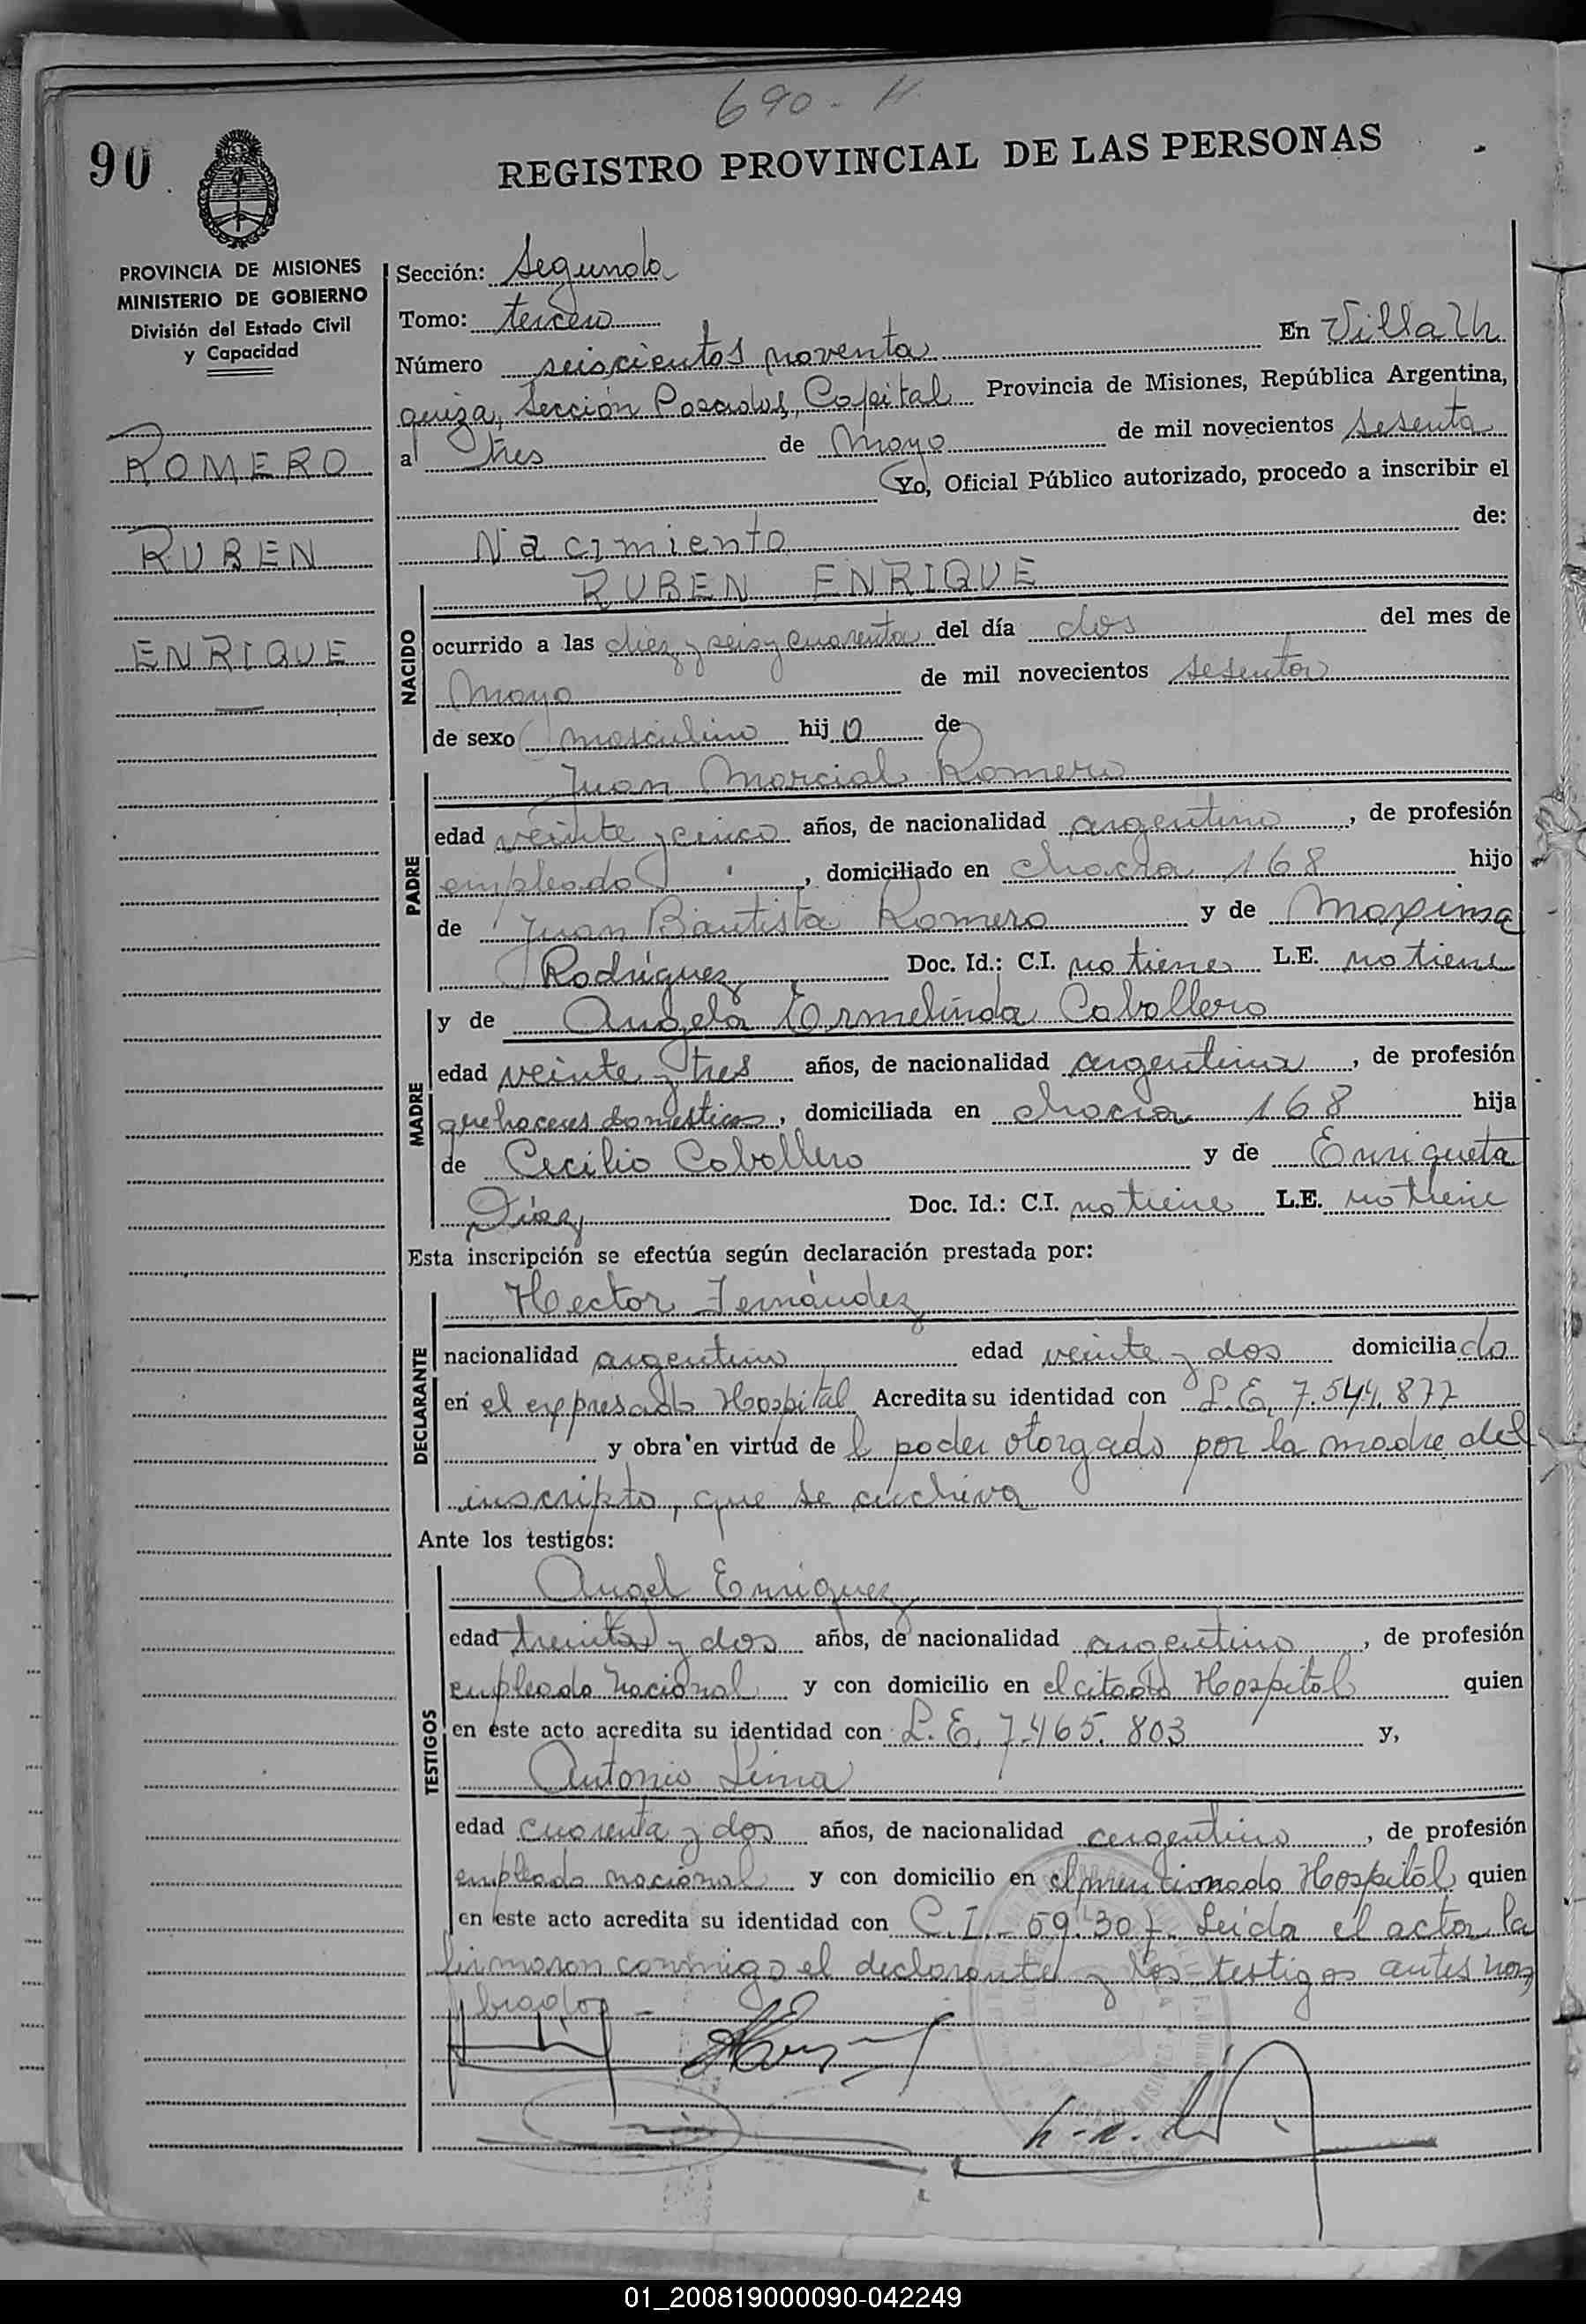 690 - H
90
REGISTRO PROVINCIAL DE LAS PERSONAS
PROVINCIA DE MISIONES
MINISTERIO DE GOBIERNO
División del Estado Civil
y Capacidad
ROMERO
RUBEN
ENRIQUE
Sección: Segunda
Tomo: tercero
Número seiscientos noventa En Villa Ur
quiza, Sección Posadas, Capital Provincia de Misiones, República Argentina,
a tres de Mayo de mil novecientos sesenta
Yo, Oficial Público autorizado, procedo a inscribir el
Nacimiento de:
NACIDO
RUBEN ENRIQUE
ocurrido a las diez y seis y cuarenta del día dos del mes de
Mayo de mil novecientos sesenta
de sexo masculino hijo de
PADRE
Juan Marcial Romero
edad veinte y cinco años, de nacionalidad argentino, de profesión
empleado, domiciliado en chacra 168 hijo
de Juan Bautista Romero y de Maxima
Rodríguez Doc. Id.: C.I. no tiene L.E. no tiene
MADRE
y de Angela Ermelinda Caballero
edad veinte y tres años, de nacionalidad argentina, de profesión
quehaceres domésticos, domiciliada en chacra 168 hija
de Cecilio Caballero y de Enriqueta
Díaz Doc. Id.: C.I. no tiene L.E. no tiene
Esta inscripción se efectúa según declaración prestada por:
DECLARANTE
Hector Fernández
nacionalidad argentino edad veinte y dos domiciliado
en el expresado Hospital Acredita su identidad con L.E. 7.544.877
y obra en virtud del poder otorgado por la madre del
inscripto, que se archiva
Ante los testigos:
TESTIGOS
Angel Enriquez
edad treinta y dos años, de nacionalidad argentino, de profesión
empleado nacional y con domicilio en el citado Hospital quien
en este acto acredita su identidad con L.E. 7.465.803 y,
Antonio Lima
edad cuarenta y dos años, de nacionalidad argentino, de profesión
empleado nacional y con domicilio en el mencionado Hospital quien
en este acto acredita su identidad con C.I. - 59.307 - Leída el acta, la
firmaron conmigo el declarante y los testigos antes nom
brados -
01_200819000090-042249